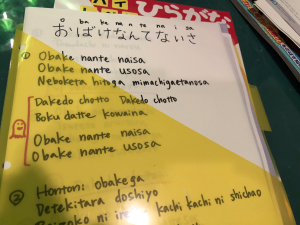 ひらがな
o ba ke na n te na i sa
おばけなんてないさ
① Obake nante naisa
Obake nante usosa
Neboketa hitoga mimachigaetanosa
Dakedo chotto Dakedo chotto
Boku datte kowaina
Obake nante naisa
Obake nante usosa
② Hontoni obakega
Detekitara doshiyo
ni kachi kachi ni shichao